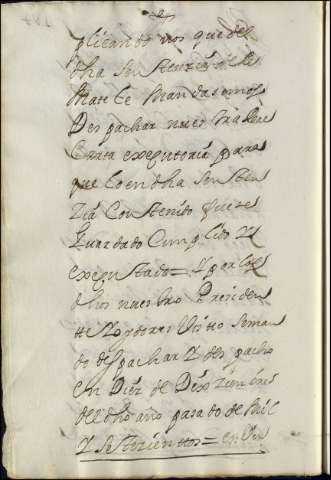 plicando nos que de
dha sentenzia de Re
mate le mandasemos
Despachar nuestra Real
Carta executoria para
que lo en dha senten
zia Contenido fuese
Guardado Cumplido Y
executado = Y por los
dhos nuestro Presiden
tte Y oydores Visto se man
do despachar Y des pacho
en Diez de Diziembre
del dho año pasado de mil
Y setezientos = en